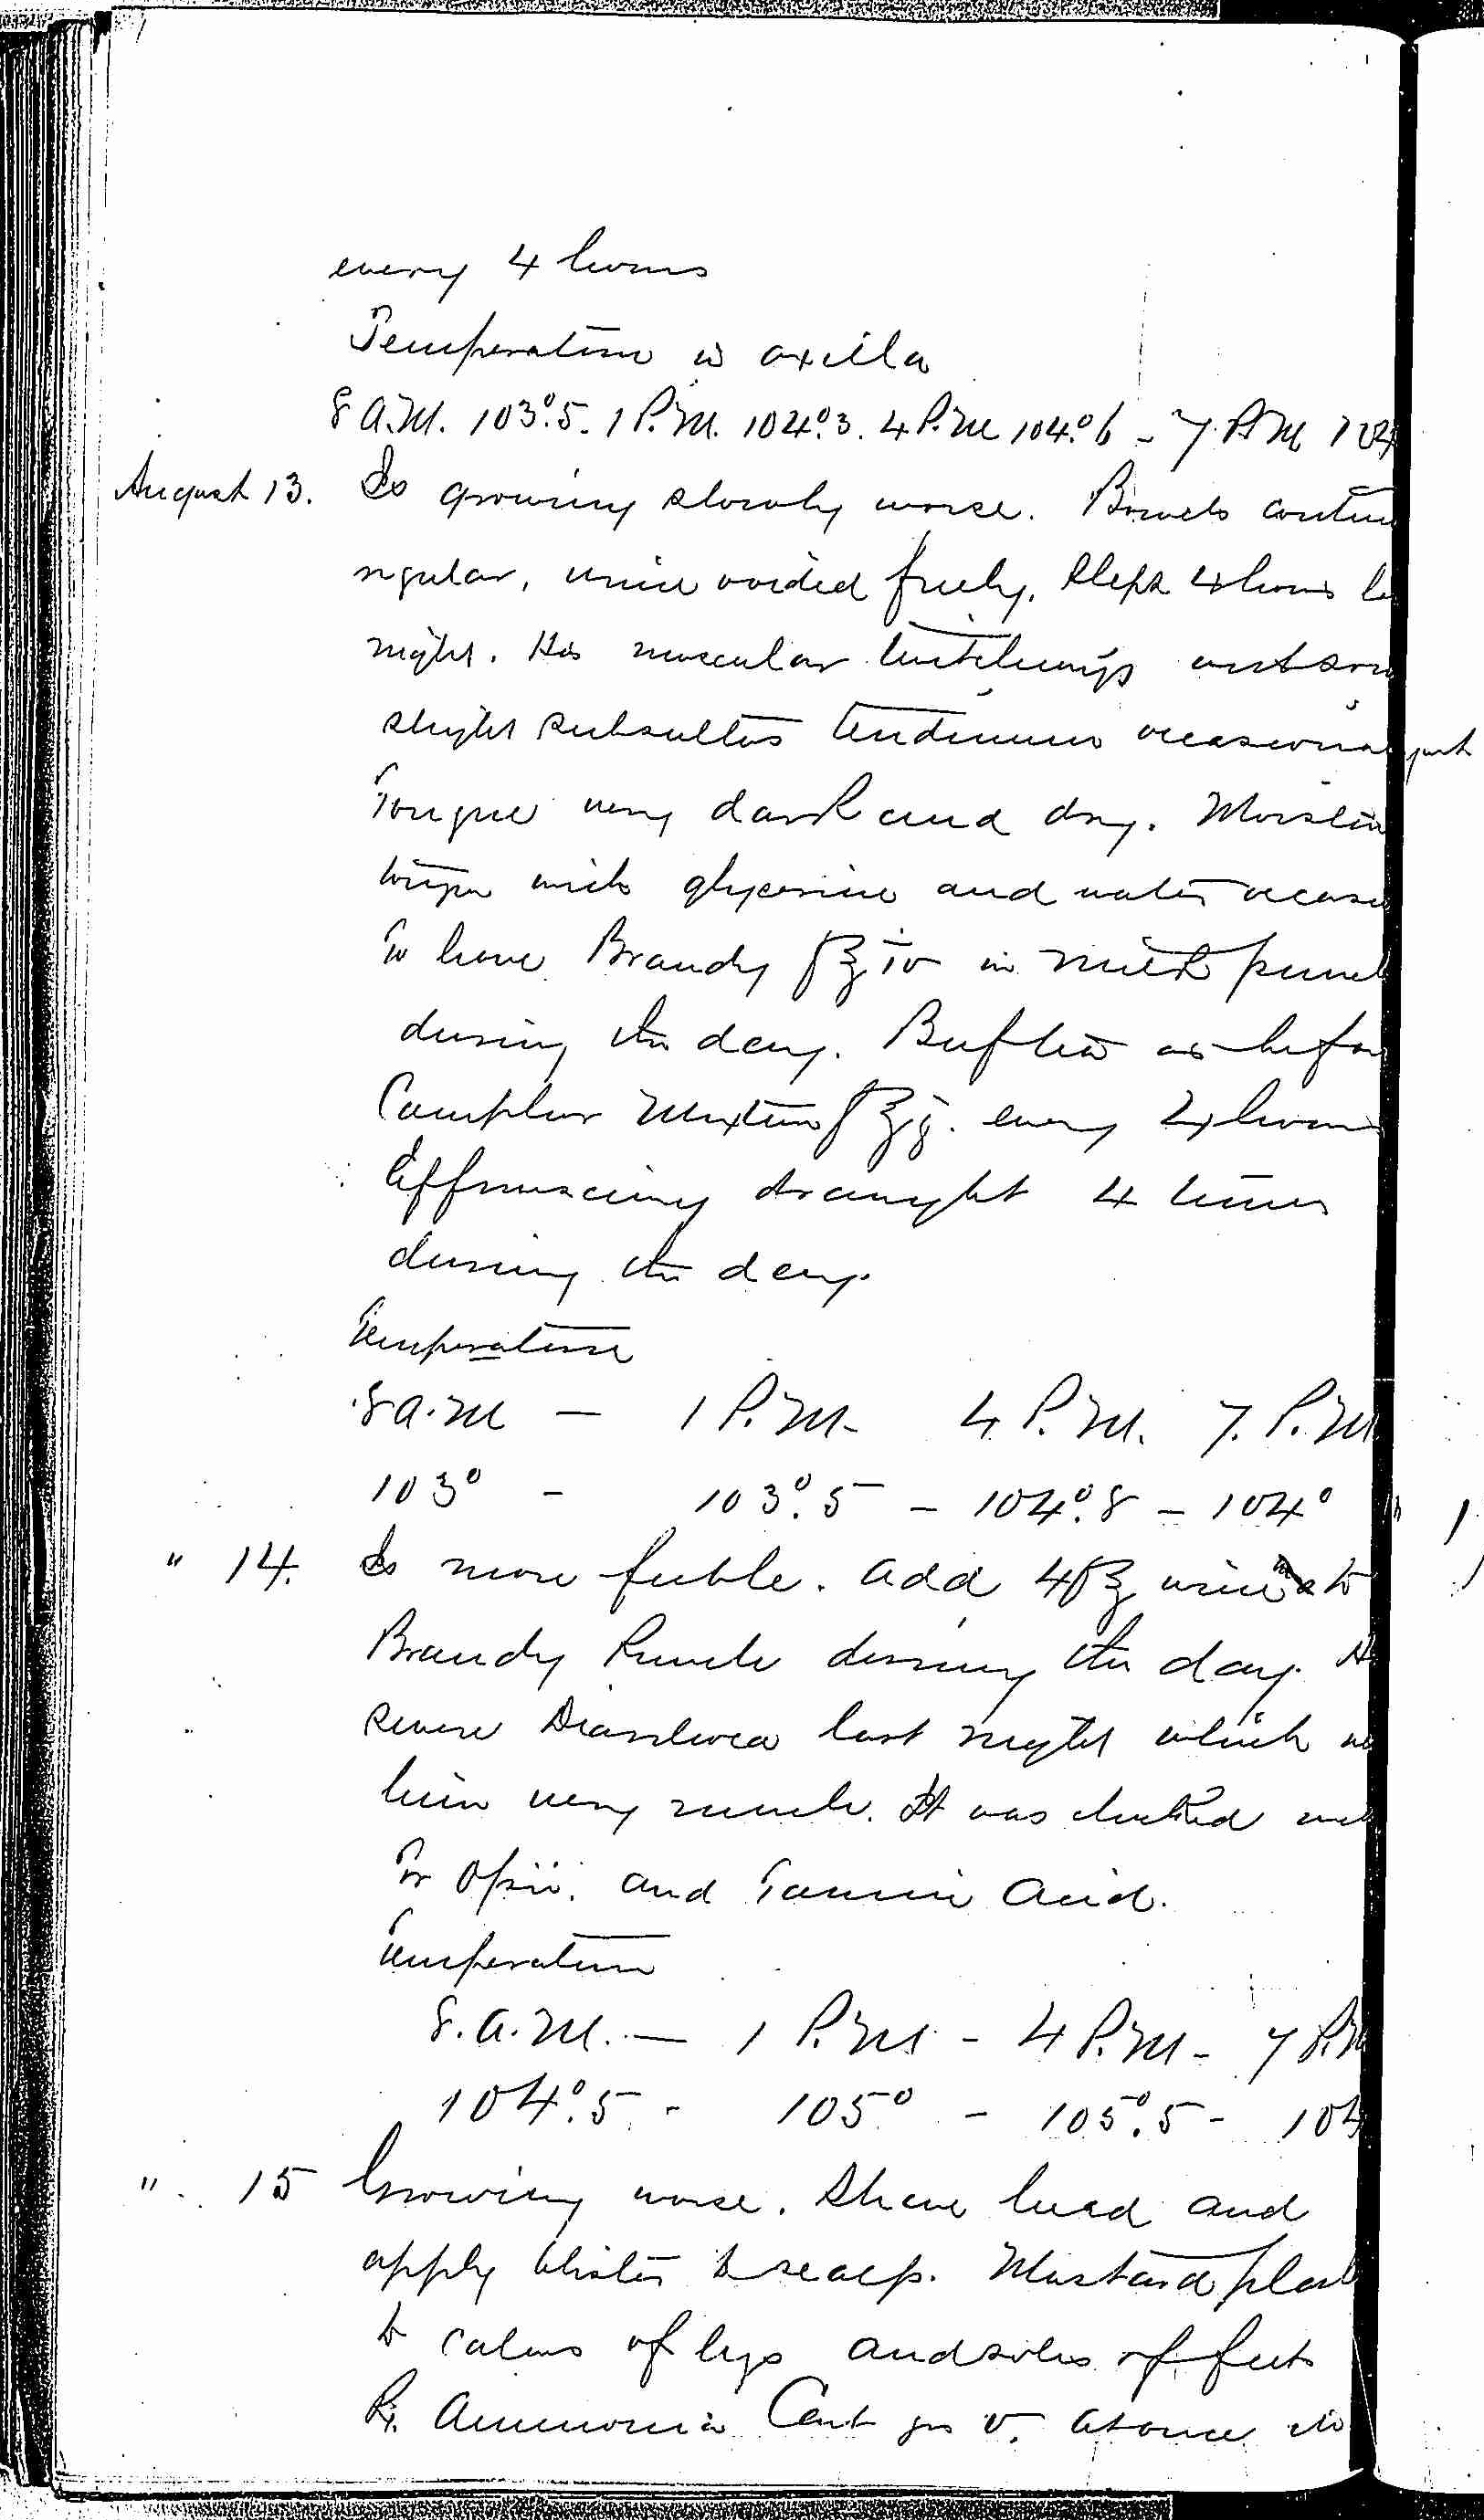 every 4 hours
Temperature in axilla
8 A.M. 103°.5. 1 P.M. 104°.3. 4 P.M 104°.6 - 7 P.M 104
August 13. Is growing slowly worse. Bowels contin
regular, urine voided freely. Slept 4 hours la
night. Has muscular twitchings and som
slight subsultus tendinum occasiona
Tongue very dark and dry. Moisten
with glycerine and water occasi
To have Brandy f℥iv in milk punch
during the day. Beef tea as befor
Camphor Mixture f℥j. every 4 hours
Effervescing draught 4 times
during the day.
Temperature
8 A.M — 1 P.M. 4 P.M. 7. P.M
103° - 103°.5 - 104°.8 - 104°
" 14. Is more feeble. Add 4 f℥ wine to
Brandy Punch during the day. H
severe Diarrhoea last night which we
him very much. It was checked wit
Tr Opii. and Tannic Acid.
Temperature
8. A. M. — 1 P.M - 4 P.M - 7 P.M
104°.5 - 105° - 105°.5 - 104
" 15 Growing worse. Shave head and
apply blister to scalp. Mustard plast
to calves of legs and soles of feet
Rx. Ammonia Carb grs v. at once